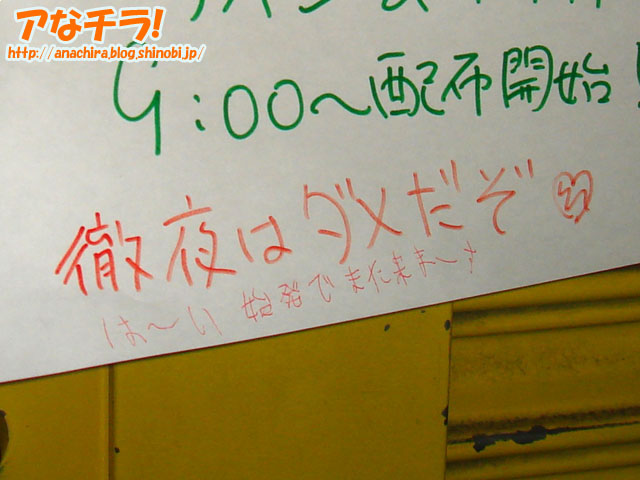 アなチラ!
http://anachira.blog.shinobi.jp/
9:00〜配布開始!
徹夜はダメだぞ♡
は〜い 始発でまた来ま〜す